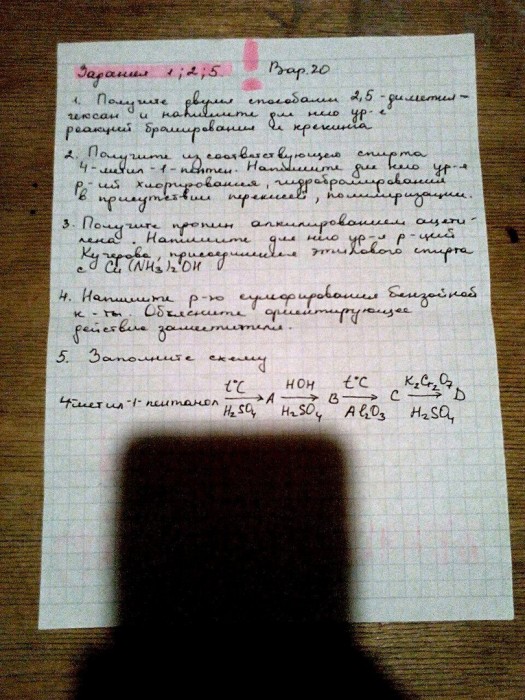 Задания 1;2;5 ! Вар.20
1. Получите двумя способами 2,5-диметил-
гексан и напишите для него ур-е
реакций бромирования и крекинга
2. Получите из соответствующего спирта
4-метил-1-пентен. Напишите для него ур-я
р-ий хлорирования, гидробромирования
в присутствии перекисей, полимеризации.
3. Получите пропин алкилированием ацети-
лена. Напишите для него ур-я р-ций
Кучерова, присоединения этилового спирта
с Cu(NH3)2OH
4. Напишите р-ю сульфирования бензойной
к-ты. Объясните ориентирующее
действие заместителя.
5. Заполните схему
4-метил-1-пентанол t°C H2SO4 → A HOH H2SO4 → B t°C Al2O3 → C K2Cr2O7 H2SO4 → D